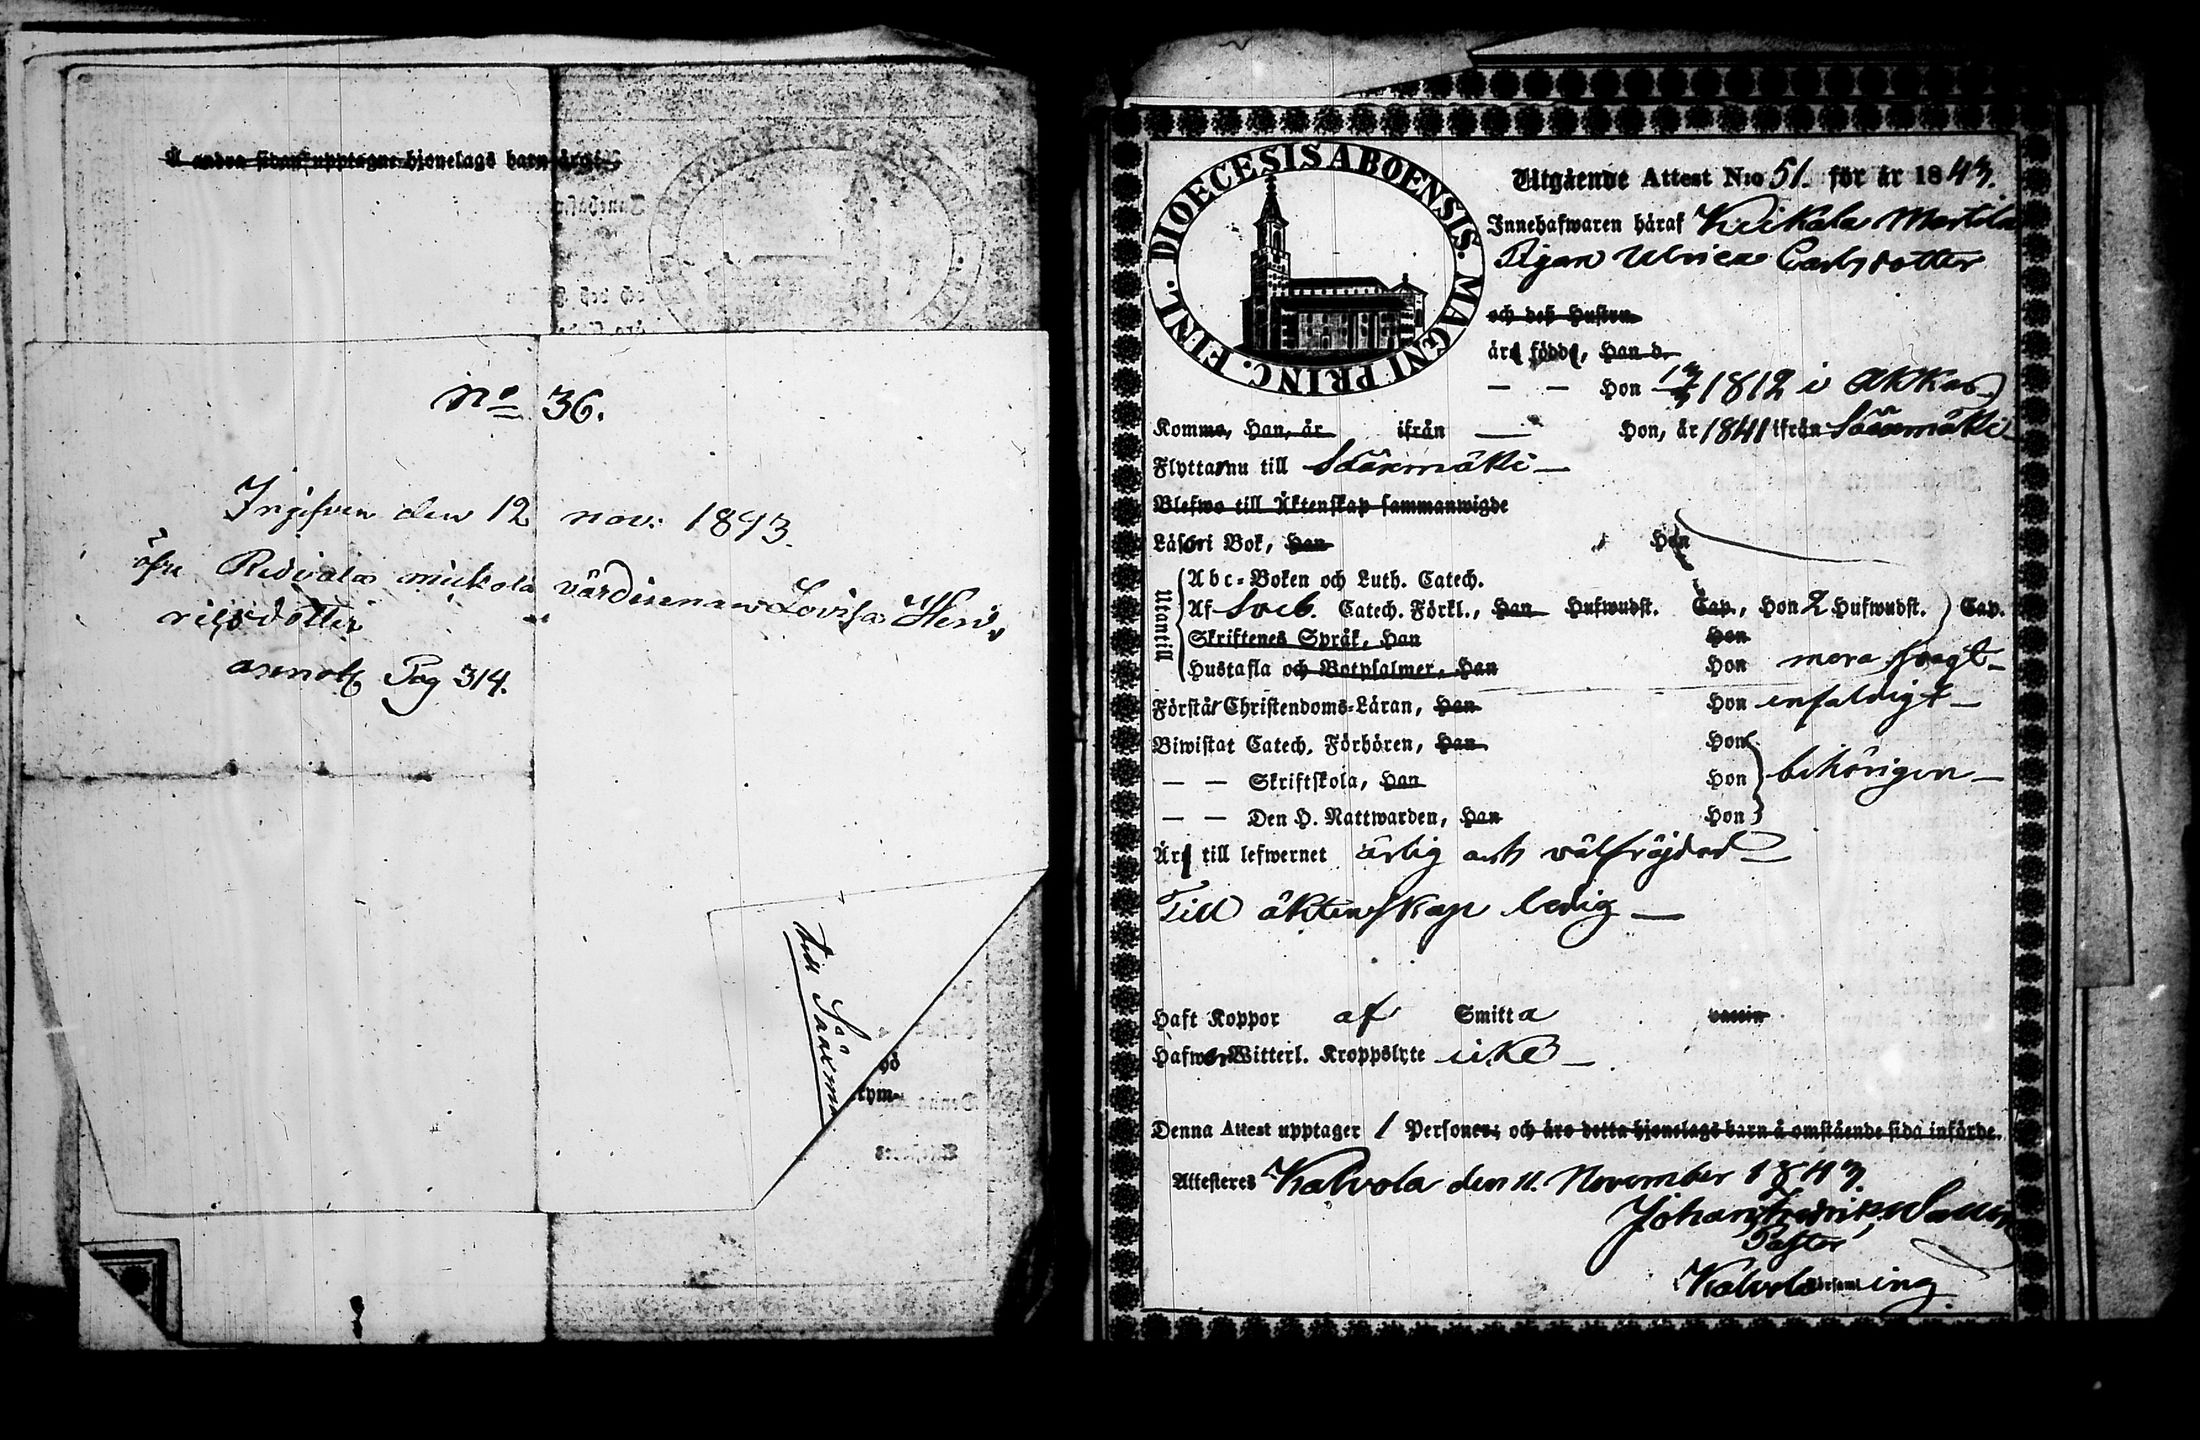 Å andra sidan upptagne hjonelags barn äro:
No 36.
Ingifven den 12 nov: 1843.
öfr Ridvala mickola värdinnan Lovisa Hen-
ricsdotter
Pag 314.
till Sääxm
DIOECESIS ABOENSIS. MAGNI PRINC. FINL.
Utgående Attest N:o 51. för år 1843.
Innehafwaren häraf Keikala Martila
Pigan Ulrica Carlsdotter
och deß Hustru
äro födde, Han d.
— — Hon 1812 i Akkas
Komme, Han, år ifrån — Hon, år 1841 ifrån Sääxmäki
Flyttar nu till Sääxmäki —
Blefwo till Äktenskap sammanwigde
Läser i Bok, Han Hon
Utantill
Abc-Boken och Luth. Catech.
Af Sveb. Catech. Förkl., Han Hufwudst. Cap., Hon 2 Hufwudst. Cap.
Skriftenes Språk, Han Hon
Hustafla och Botpsalmer, Han Hon mera svagt —
Förstår Christendoms-Läran, Han Hon enfaldigt —
Biwistat Catech. Förhören, Han Hon
— — Skriftskola, Han Hon behörigen —
— — Den H. Nattwarden, Han Hon
Är till lefwernet ärlig och välfräjdad —
Till äktenskap ledig —
Haft Koppor af Smitta vaccin
Hafwer Witterl. Kroppslyte icke —
Denna Attest upptager 1 Personer; och äro detta hjonelags barn å omstående sida införde.
Attesteres Kalvola den 11. November 1843.
Johan Fredrik
Pastor
Kalvola Församling